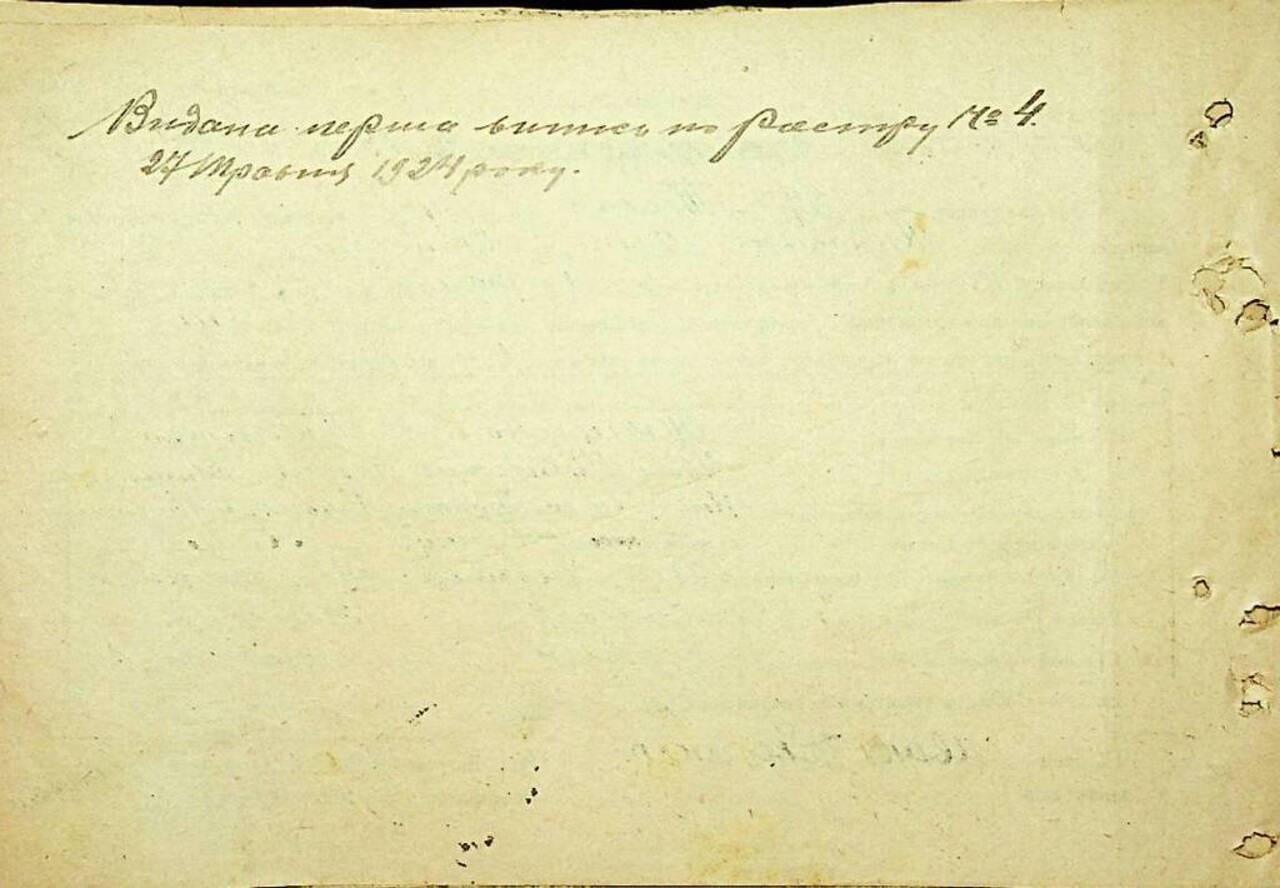 Видана перша випись по Раестру № 4.
27 Травня 1924 року.